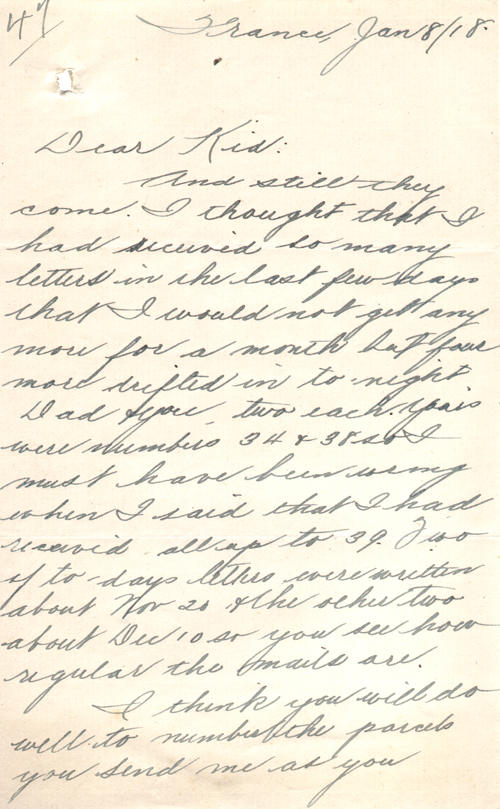 47
France, Jan 8/18.
Dear Kid:
And still they
come. I thought that I
had received so many
letters in the last few days
that I would not get any
more for a month but four
more drifted in to-night
Dad & you, two each. Yours
were numbers 34 & 38 so I
must have been wrong
when I said that I had
received all up to 39. Two
of to-days letters were written
about Nov 20 & the other two
about Dec 10 so you see how
regular the mails are.
I think you will do
well to number the parcels
you send me as you